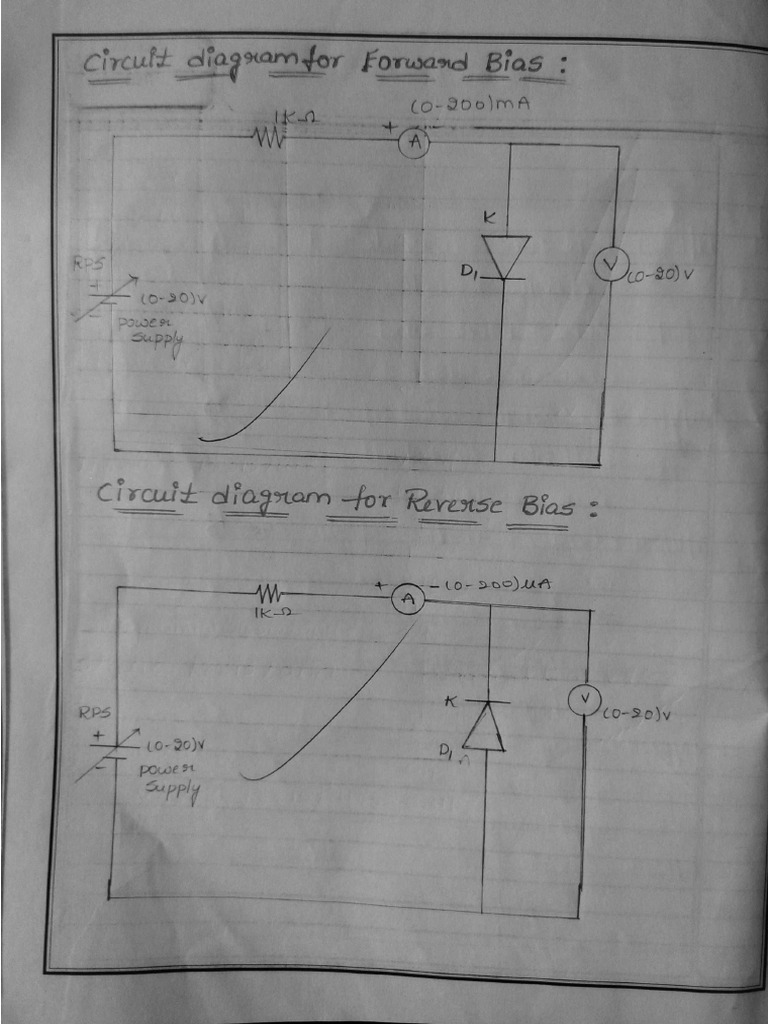 Circuit diagram for Forward Bias :
(0-200)mA
1K-Ω
+ -
A
K
RPS
D1
V
(0-20)V
+
(0-20)V
-
power
supply
Circuit diagram for Reverse Bias :
+ - (0-200)μA
A
1K-Ω
K
V
RPS
(0-20)V
+
(0-20)V
D1
-
power
supply